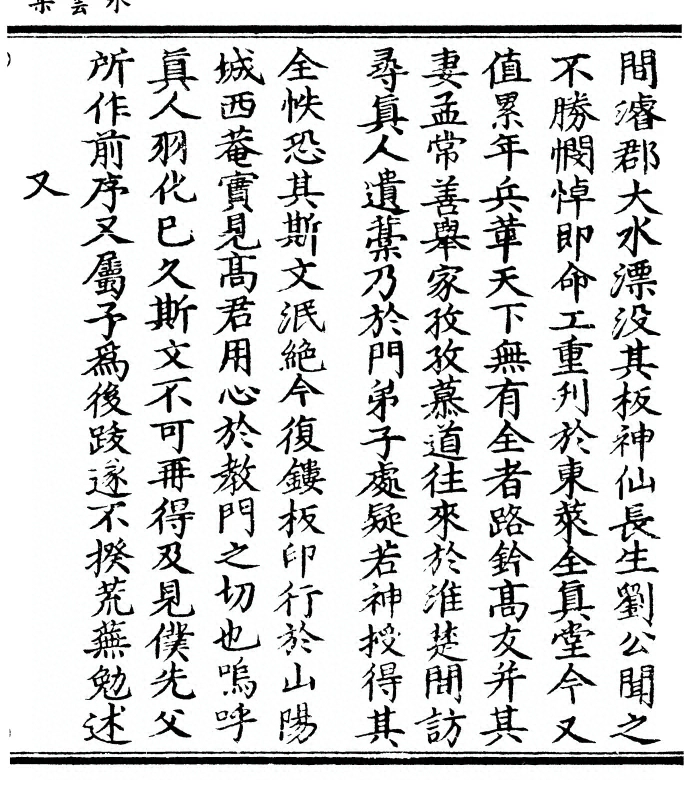 間濬郡大水漂没其板神仙長生劉公聞之
不勝憫悼即命工重刋於東萊全真堂今又
值累年兵革天下無有全者路鈐髙友并其
妻孟常善舉家孜孜慕道往來於淮楚間訪
尋真人遺藁乃於門弟子處疑若神授得其
全帙恐其斯文泯絶今復鏤板印行於山陽
城西菴實見髙君用心於教門之切也嗚呼
真人羽化已久斯文不可再得及見僕先父
所作前序又屬予為後跋遂不揆荒蕪勉述
又